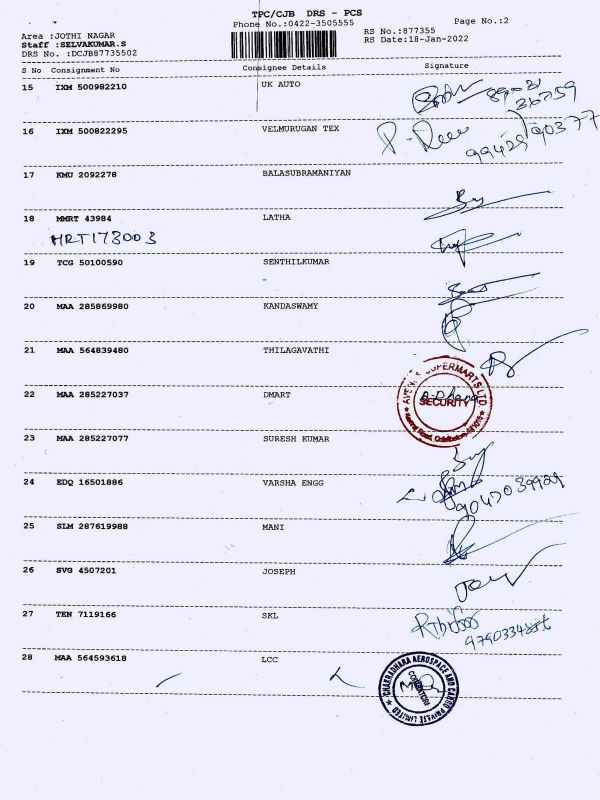 TPC/CJB DRS - PCS
Phone No.:0422-3505555
Page No.:2
Area :JOTHI NAGAR
RS No.:877355
Staff :SELVAKUMAR.S
RS Date:18-Jan-2022
DRS No. :DCJB87735502
S No Consignment No Consignee Details Signature
15 IXM 500982210 UK AUTO
16 IXM 500822295 VELMURUGAN TEX
99429 90377
17 KMU 2092278 BALASUBRAMANIYAN
18 MMRT 43984 LATHA
MRT173003
19 TCG 50100590 SENTHILKUMAR
20 MAA 285869980 KANDASWAMY
21 MAA 564839480 THILAGAVATHI
22 MAA 285227037 DMART
AVENUE SUPERMARTS LTD
SECURITY
23 MAA 285227077 SURESH KUMAR
24 EDQ 16501886 VARSHA ENGG
25 SLM 287619988 MANI
26 SVG 4507201 JOSEPH
27 TEN 7119166 SKL
28 MAA 564593618 LCC
CHAKRADHARA AEROSPACE AND CARGO PRIVATE LIMITED